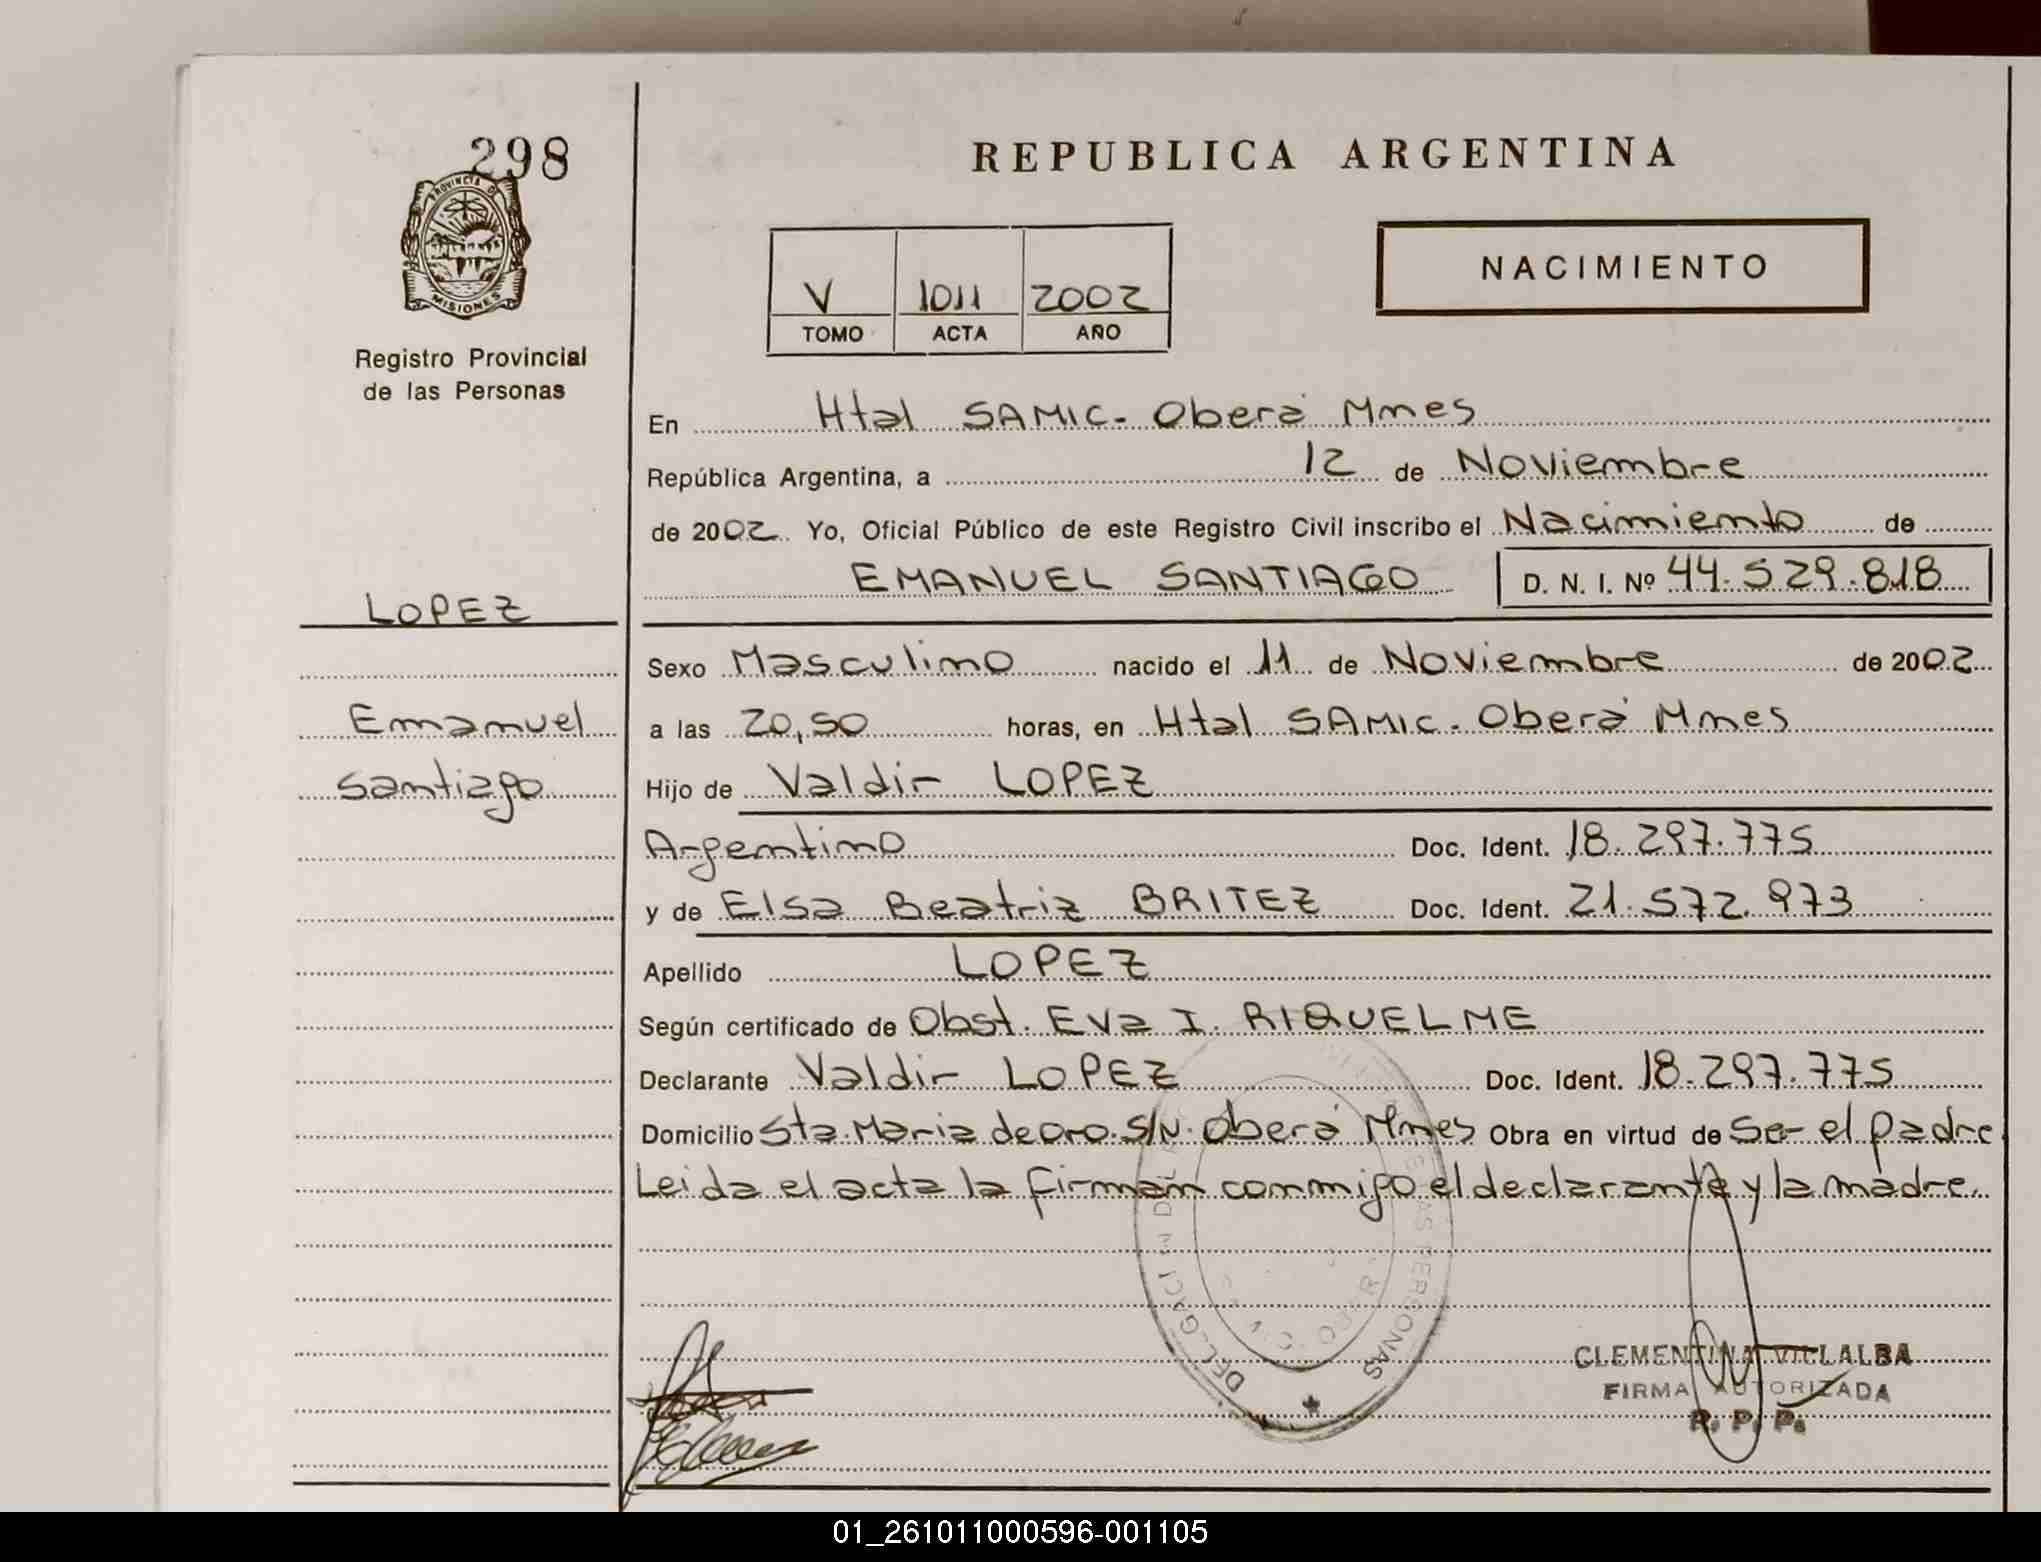 298
PROVINCIA DE
MISIONES
Registro Provincial
de las Personas
REPUBLICA ARGENTINA
V 1011 2002
TOMO ACTA AÑO
NACIMIENTO
En Htal SAMIC. Oberá Mnes
República Argentina, a 12 de Noviembre
de 2002. Yo, Oficial Público de este Registro Civil inscribo el Nacimiento de
EMANUEL SANTIAGO D. N. I. Nº 44.529.818
LOPEZ
Emanuel
Santiago
Sexo Masculino nacido el 11 de Noviembre de 2002
a las 20,50 horas, en Htal SAMIC. Oberá Mnes
Hijo de Valdir LOPEZ
Argentino Doc. Ident. 18.297.775
y de Elsa Beatriz BRITEZ Doc. Ident. 21.572.973
Apellido LOPEZ
Según certificado de Obst. Eva I. RIQUELME
Declarante Valdir LOPEZ Doc. Ident. 18.297.775
Domicilio Sta. Maria de oro. S/N. Oberá Mnes Obra en virtud de Ser el padre
Leida el acta la firman conmigo el declarante y la madre.
CLEMENTINA VILLALBA
FIRMA AUTORIZADA
R. P. P.
01_261011000596-001105